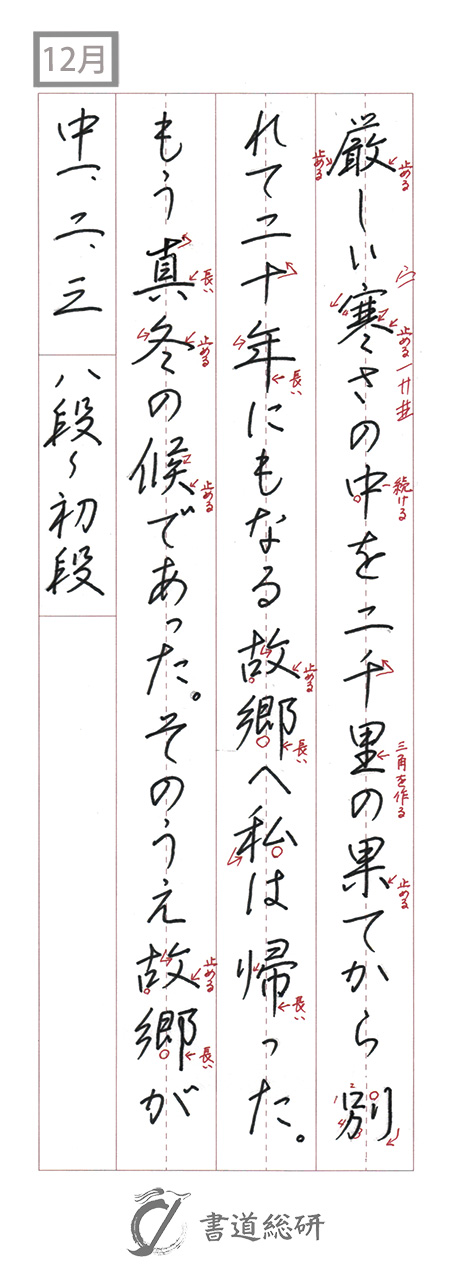 12月
厳しい寒さの中を二千里の果てから別
れて二十年にもなる故郷へ私は帰った。
もう真冬の候であった。そのうえ故郷が
中一、二、三
八段〜初段
止める
止める
宀
止める
一 卄 𠀎
続ける
三角を作る
止める
1 2 3 4
長い
止める
長い
長い
長い
止める
止める
止める
長い
書道総研